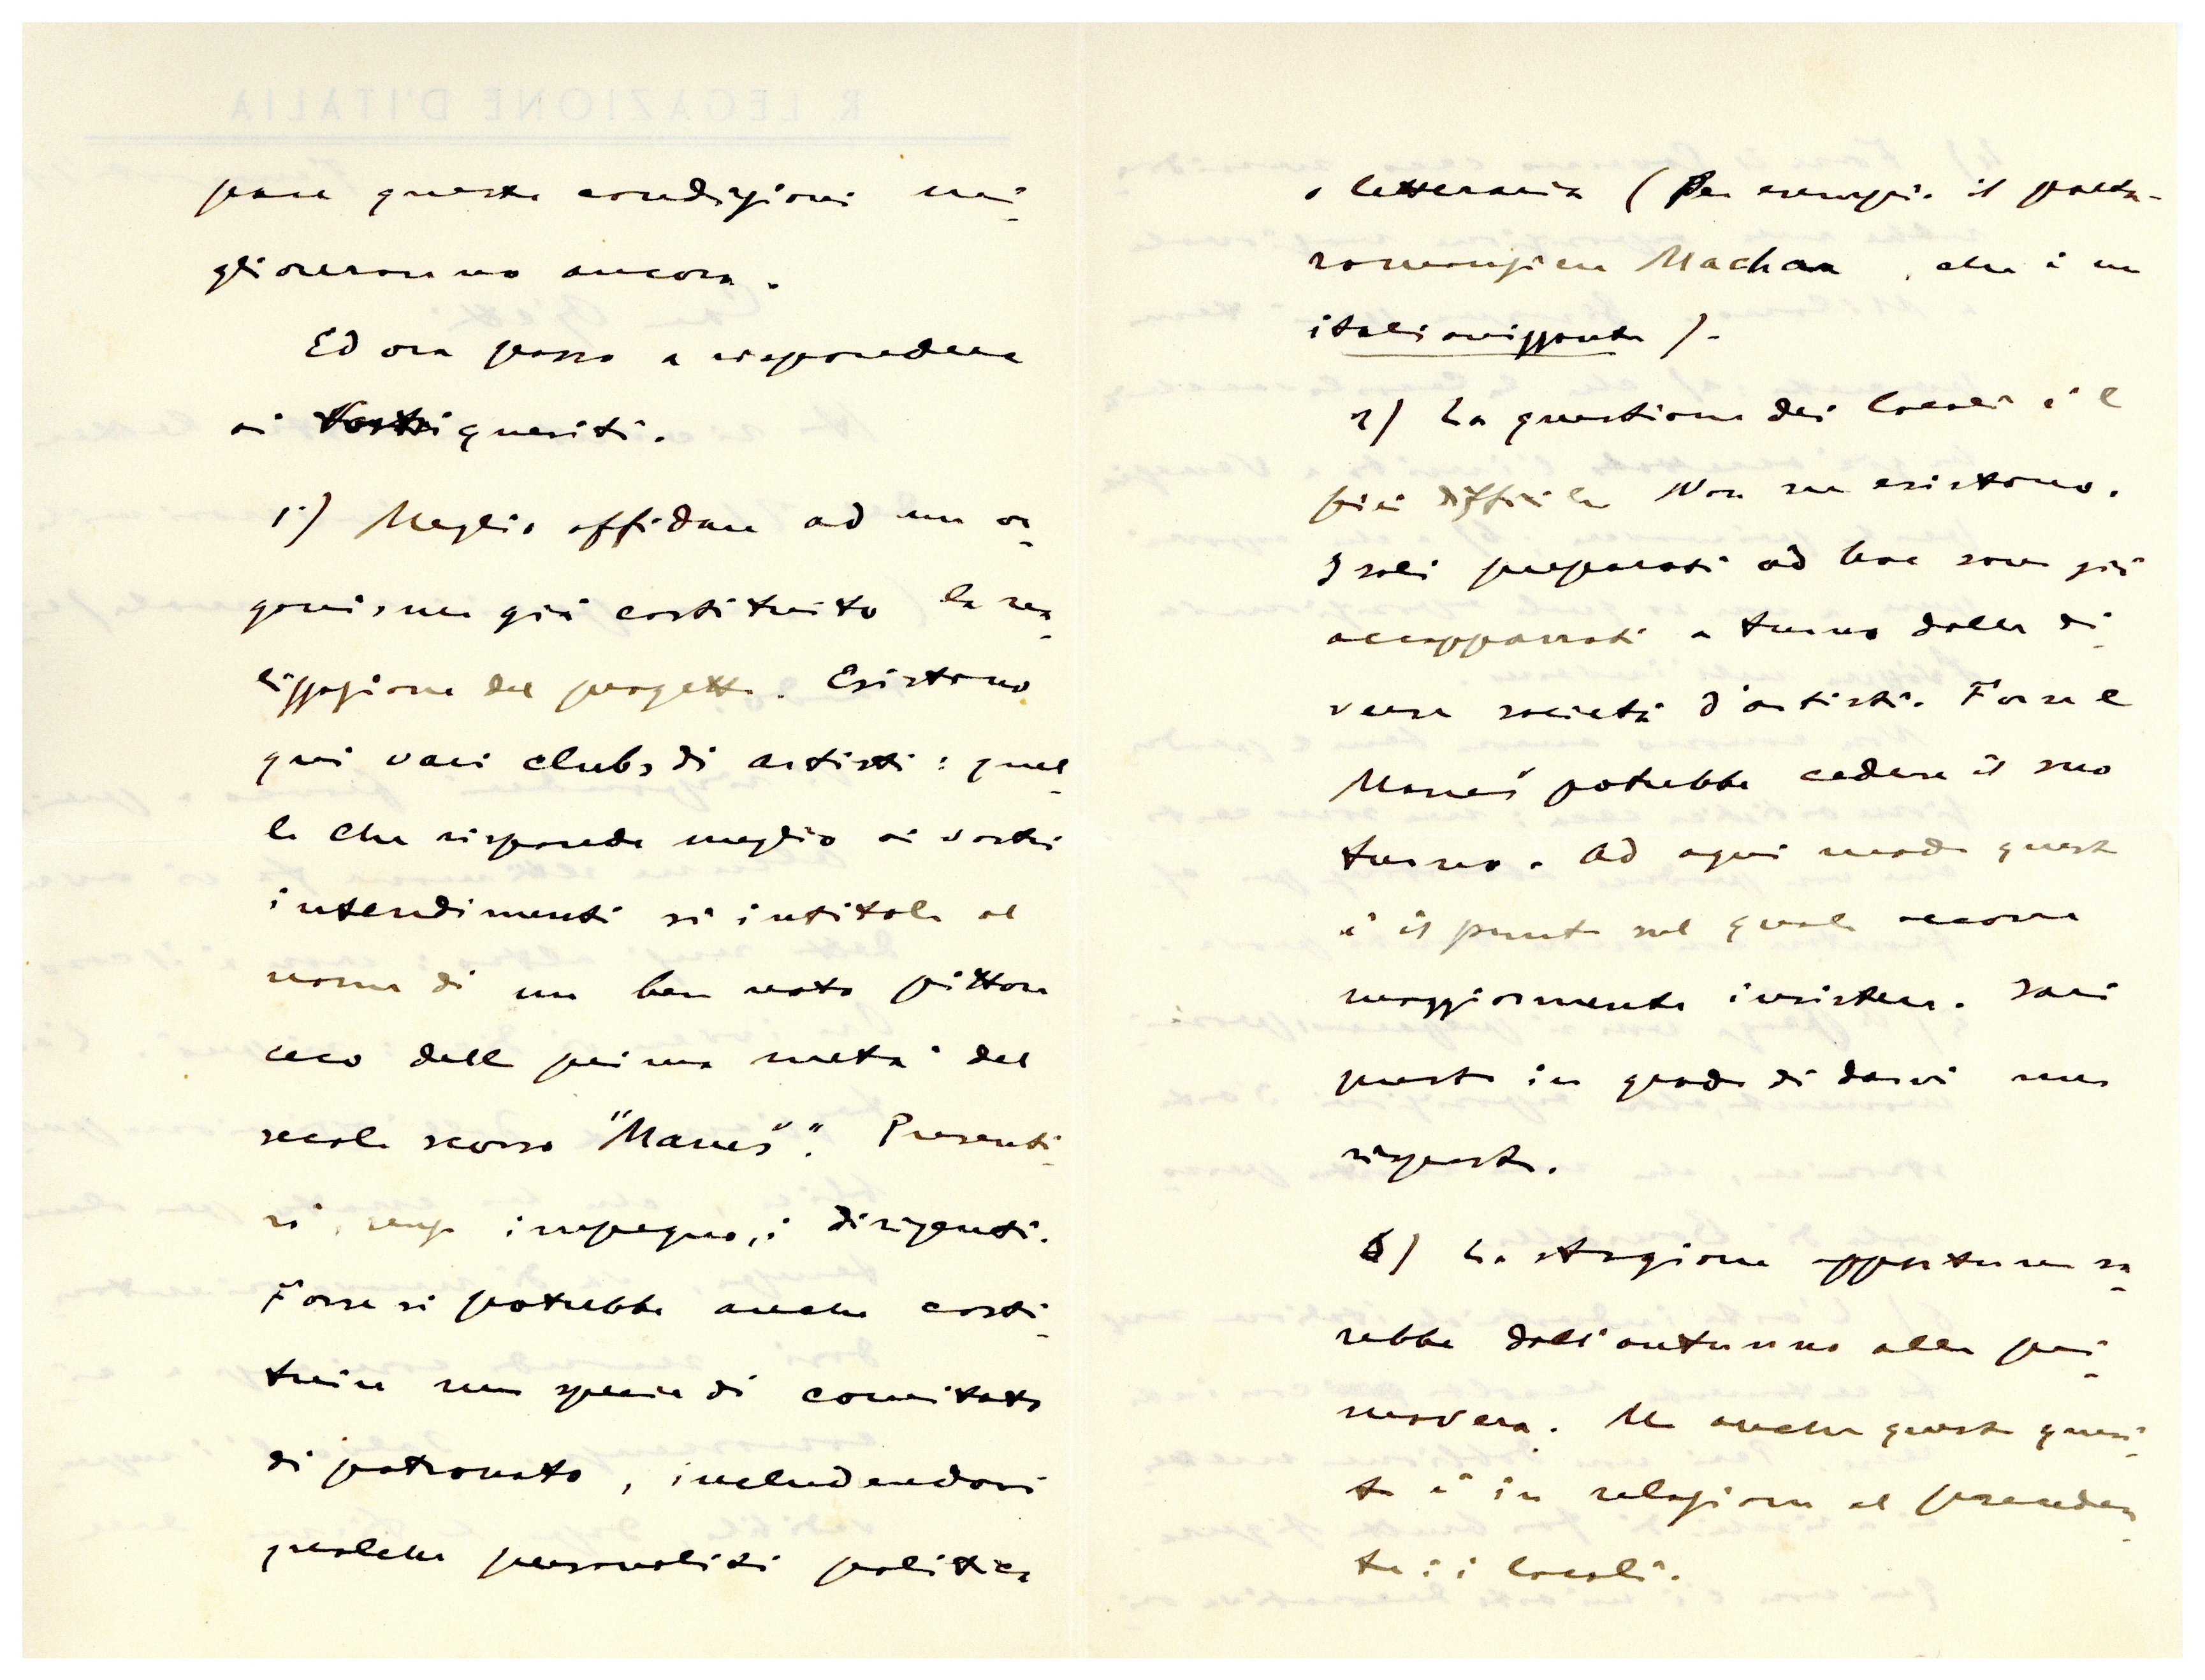 pare queste condizioni mi-
glioreranno ancora.
Ed ora passo a rispondere
ai Vostri quesiti.
1) Meglio affidare ad un or-
ganismo già costituito la rea-
lizzazione del progetto. Esistono
qui vari clubs di artisti: quel-
lo che risponde meglio ai vostri
intendimenti si intitola al
nome di un ben noto pittore
ceco della prima metà del
secolo scorso "Manes". Presenti
si, senza impegno, i dirigenti.
Forse si potrebbe anche costi-
tuire una specie di comitato
di patronato, includendovi
qualche personalità politica
R. LEGAZIONE D'ITALIA
o letteraria (Per esempio il poeta-
romanziere Machar, che è un
italianizzante).
2) La questione dei locali è la
più difficile. Non ne esistono.
I soli preparati ad hoc sono già
accapparrati a turno dalle di-
verse società d'artisti. Forse il
Manes potrebbe cedere il suo
turno. Ad ogni modo questo
è il punto sul quale occorre
maggiormente insistere. Sarei
presto in grado di darvi una
risposta.
3) La stagione opportuna sa-
rebbe dall'autunno alla pri-
mavera. Ma anche questo quesi-
to è in relazione al preceden-
te: i locali.